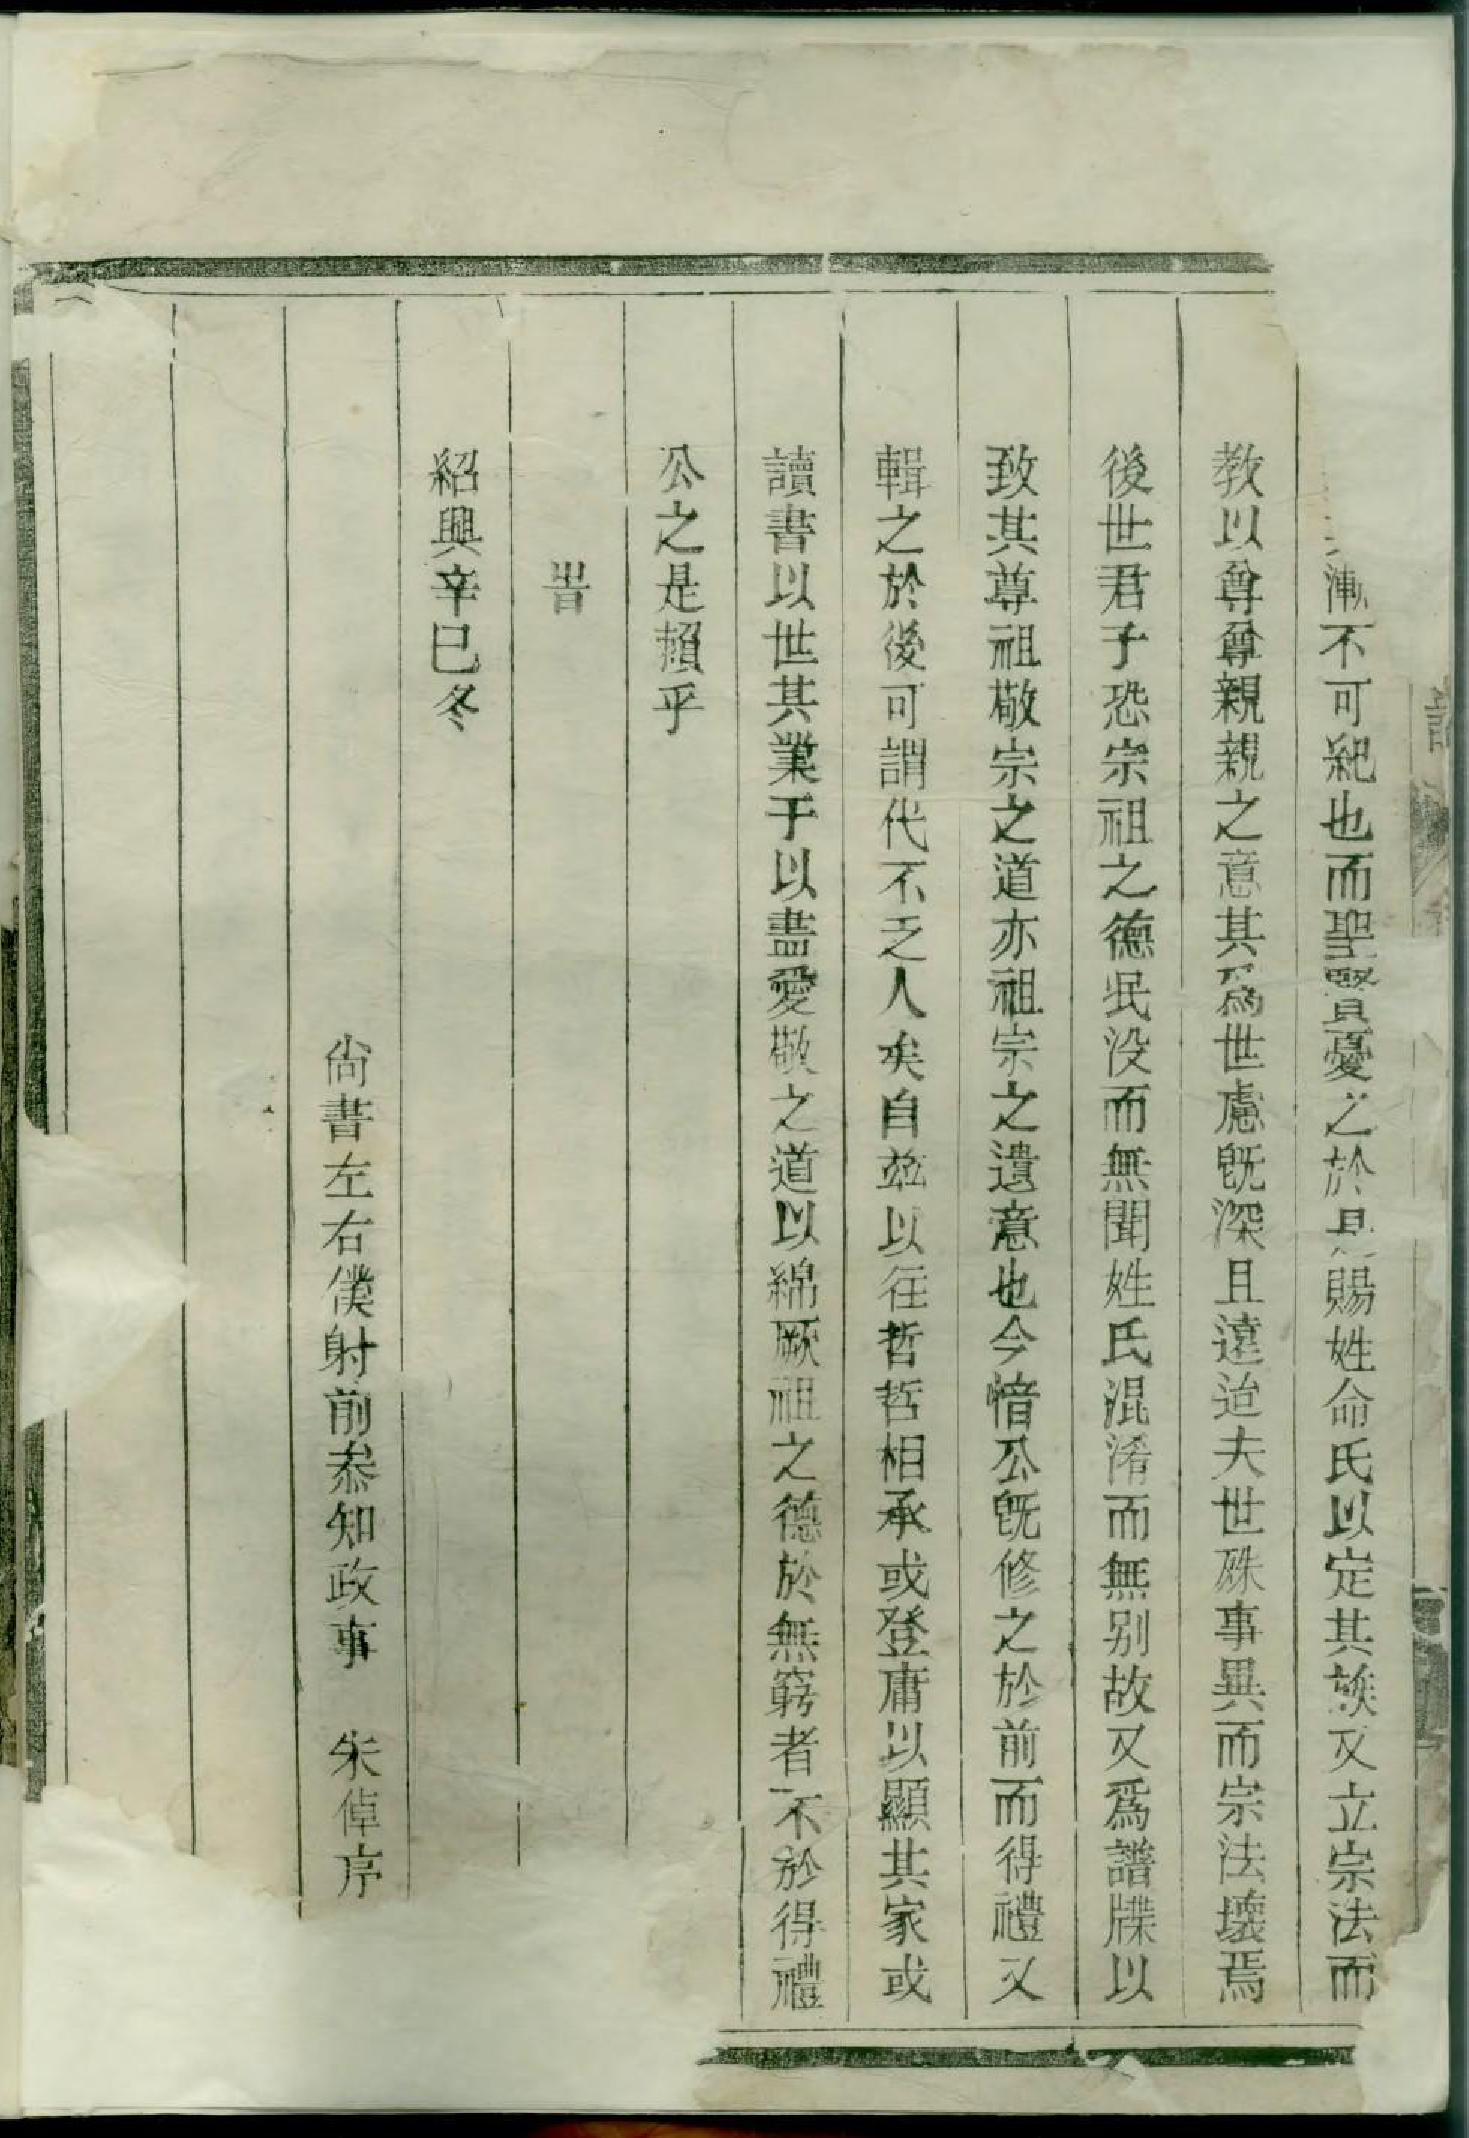 漸不可紀也而聖賢憂之於是賜姓命氏以定其族又立宗法而
教以尊尊親親之意其爲世慮旣深且遠迨夫世殊事異而宗法壞焉
後世君子恐宗祖之德泯没而無聞姓氏混淆而無别故又爲譜牒以
致其尊祖敬宗之道亦祖宗之遺意也今愔公旣修之於前而得禮又
輯之於後可謂代不乏人矣自茲以往哲哲相承或登庸以顯其家或
讀書以世其業于以盡愛敬之道以綿厥祖之德於無窮者不於得禮
公之是賴乎
旹
紹興辛巳冬
尚書左右僕射前叅知政事 朱倬序